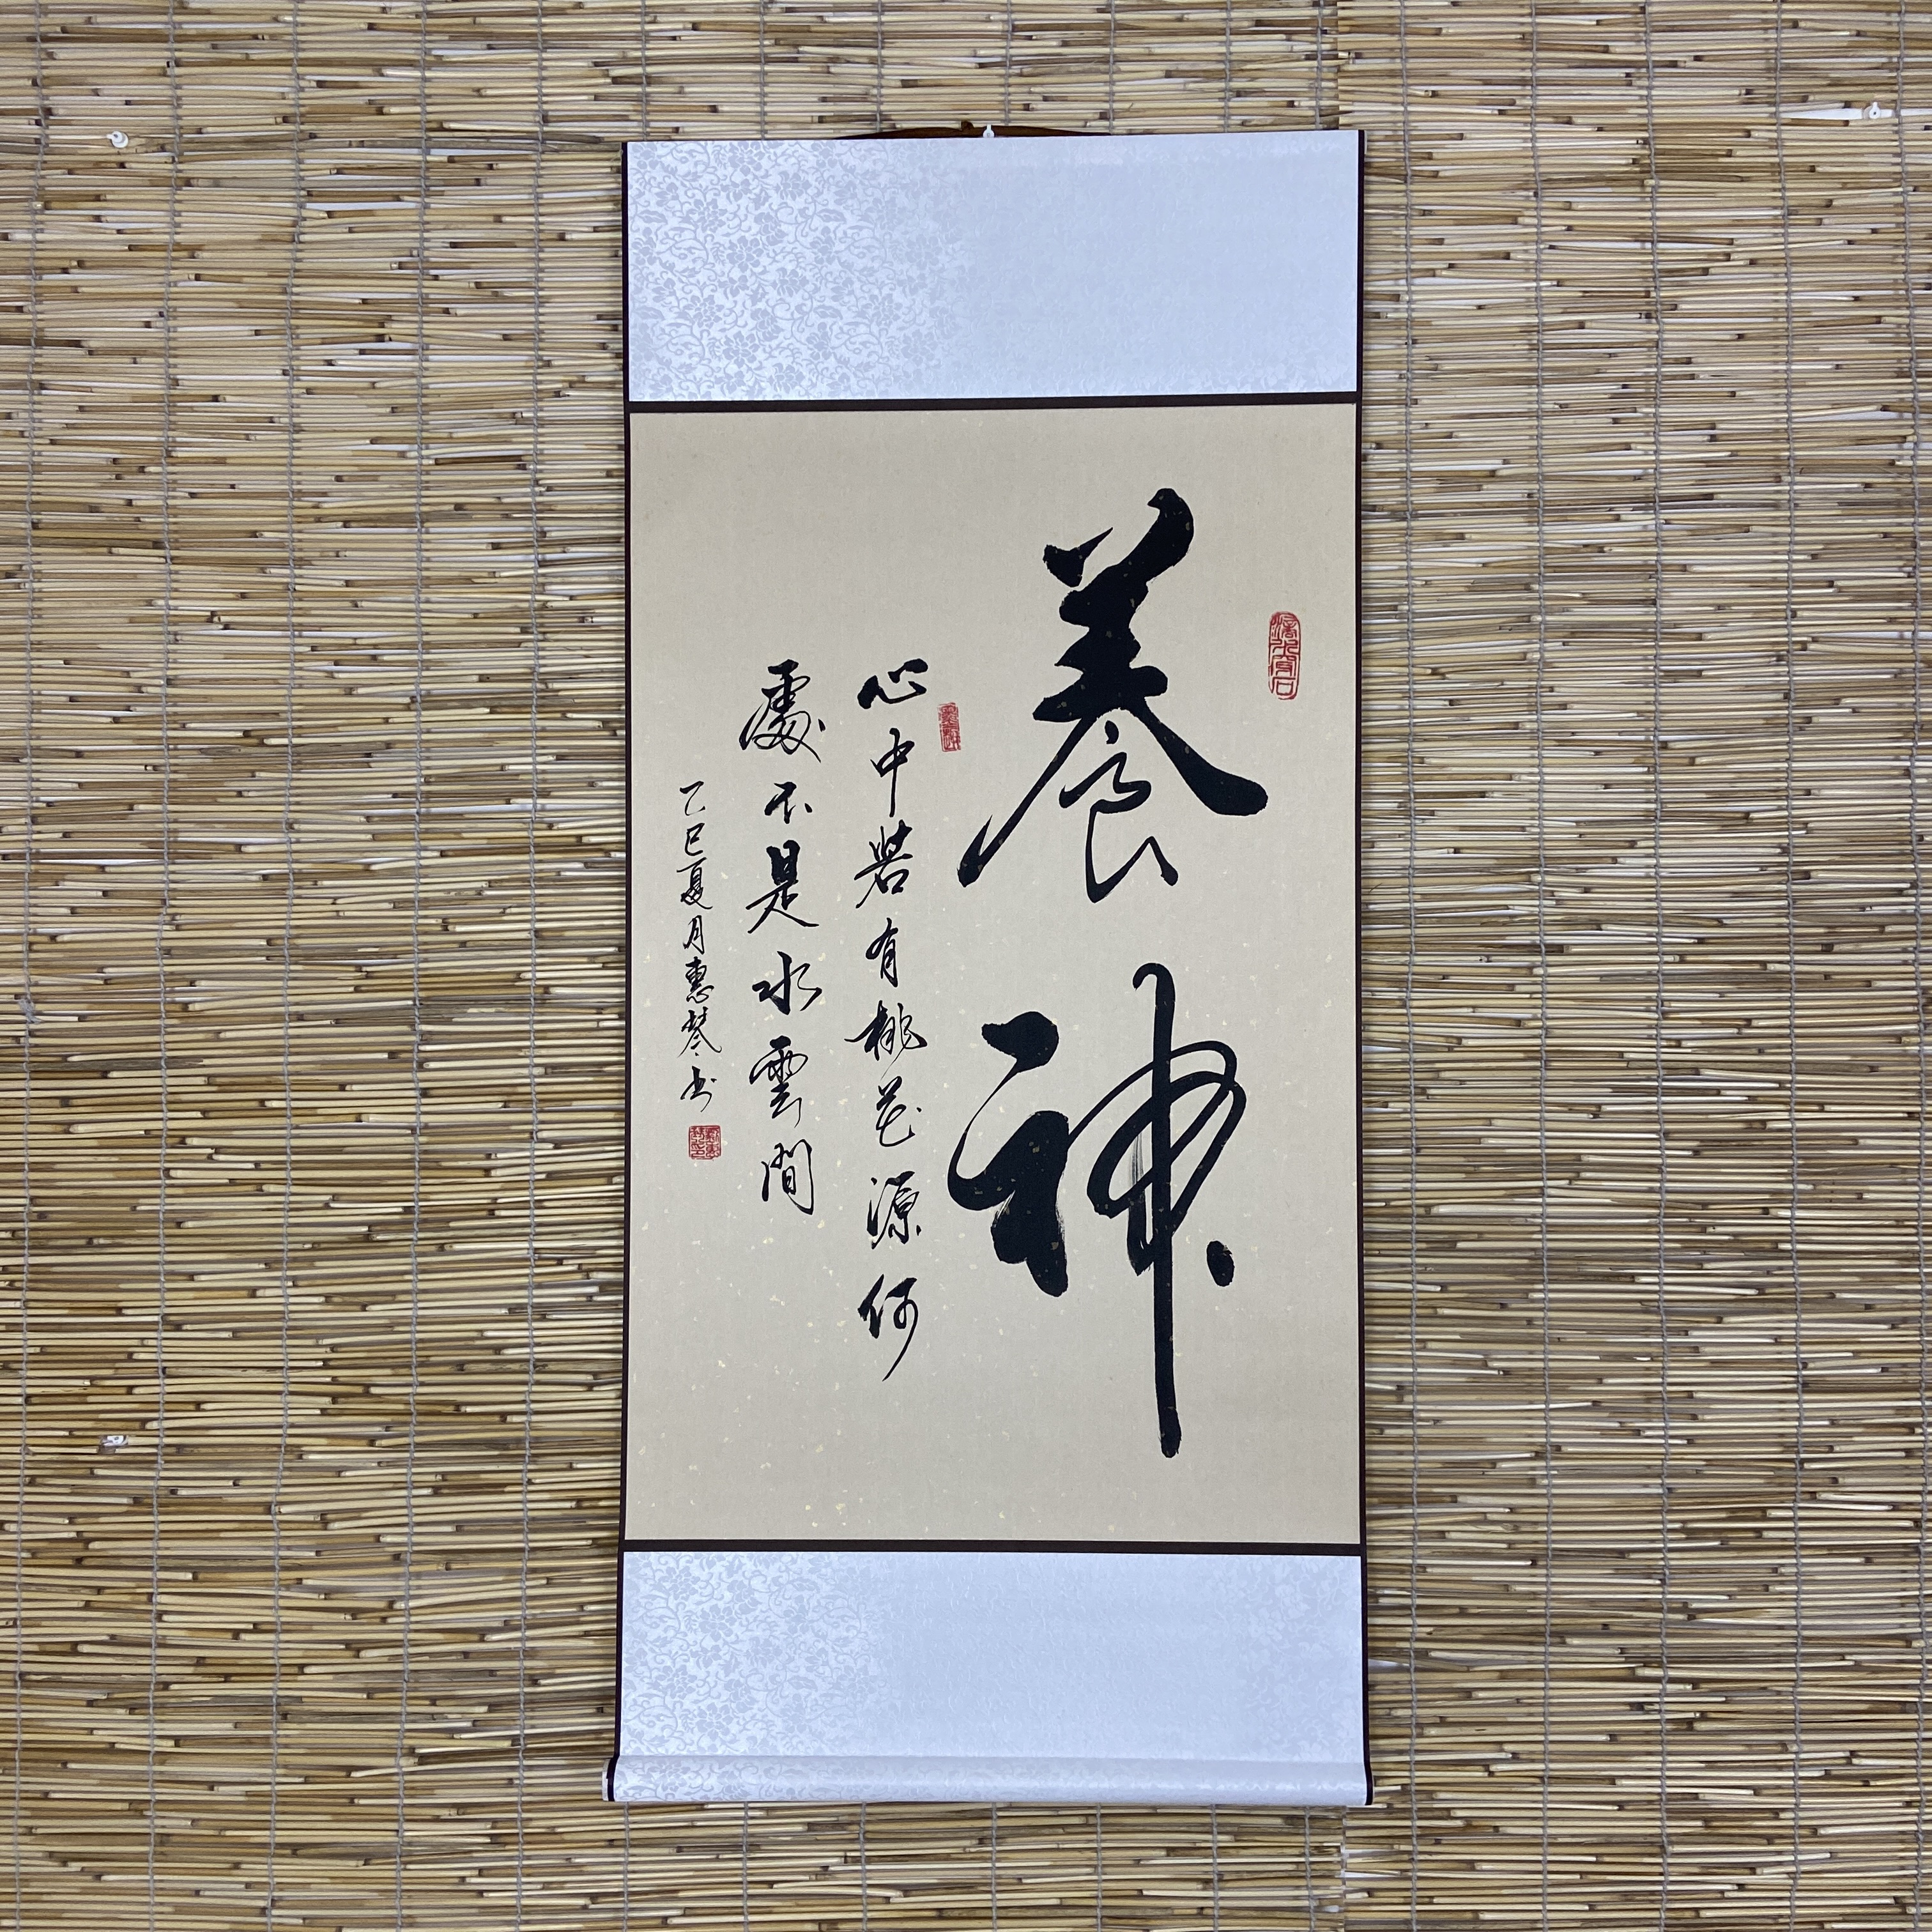 養神
心中若有桃花源何
處不是水雲間
乙巳夏月惠琴书
滴水穿石